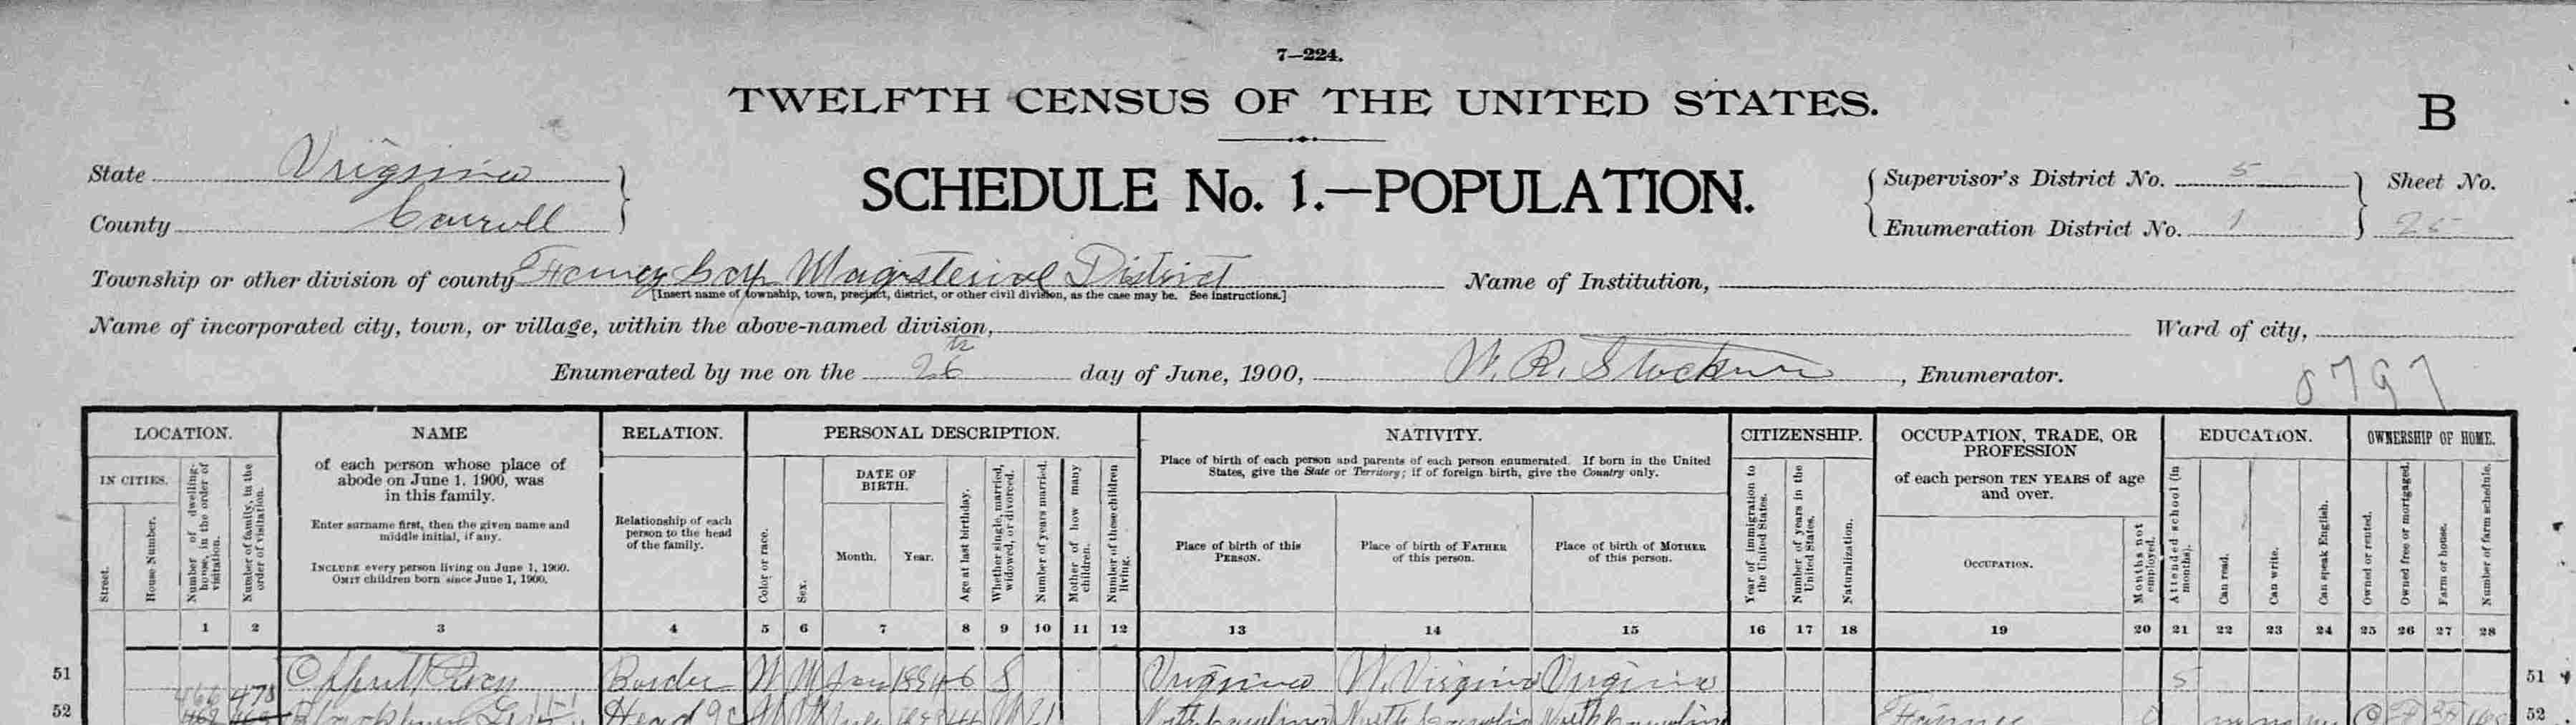 7—224.
TWELFTH CENSUS OF THE UNITED STATES.
B
State Virginia
County Carroll
SCHEDULE No. 1.—POPULATION.
Supervisor's District No. 5
Enumeration District No. 1
Sheet No.
25
Township or other division of county Magisterial District
[Insert name of township, town, precinct, district, or other civil division, as the case may be. See instructions.]
Name of Institution,
Name of incorporated city, town, or village, within the above-named division,
Ward of city,
Enumerated by me on the 26th day of June, 1900, W. R. , Enumerator.
8797
LOCATION.
IN CITIES.
Street.
House Number.
Number of dwelling-house, in the order of visitation.
Number of family, in the order of visitation.
NAME
of each person whose place of
abode on June 1, 1900, was
in this family.
Enter surname first, then the given name and
middle initial, if any.
INCLUDE every person living on June 1, 1900.
OMIT children born since June 1, 1900.
RELATION.
Relationship of each
person to the head
of the family.
PERSONAL DESCRIPTION.
Color or race.
Sex.
DATE OF
BIRTH.
Month. Year.
Age at last birthday.
Whether single, married, widowed, or divorced.
Number of years married.
Mother of how many children.
Number of these children living.
NATIVITY.
Place of birth of each person and parents of each person enumerated. If born in the United
States, give the State or Territory; if of foreign birth, give the Country only.
Place of birth of this
PERSON.
Place of birth of FATHER
of this person.
Place of birth of MOTHER
of this person.
CITIZENSHIP.
Year of immigration to the United States.
Number of years in the United States.
Naturalization.
OCCUPATION, TRADE, OR
PROFESSION
of each person TEN YEARS of age
and over.
OCCUPATION.
Months not employed.
EDUCATION.
Attended school (in months).
Can read.
Can write.
Can speak English.
OWNERSHIP OF HOME.
Owned or rented.
Owned free or mortgaged.
Farm or house.
Number of farm schedule.
1 2 3 4 5 6 7 8 9 10 11 12 13 14 15 16 17 18 19 20 21 22 23 24 25 26 27 28
51 Border W M Jan 1894 6 S Virginia W. Virginia Virginia 5 51
52 Head W M North Carolina North Carolina North Carolina Farmer 52